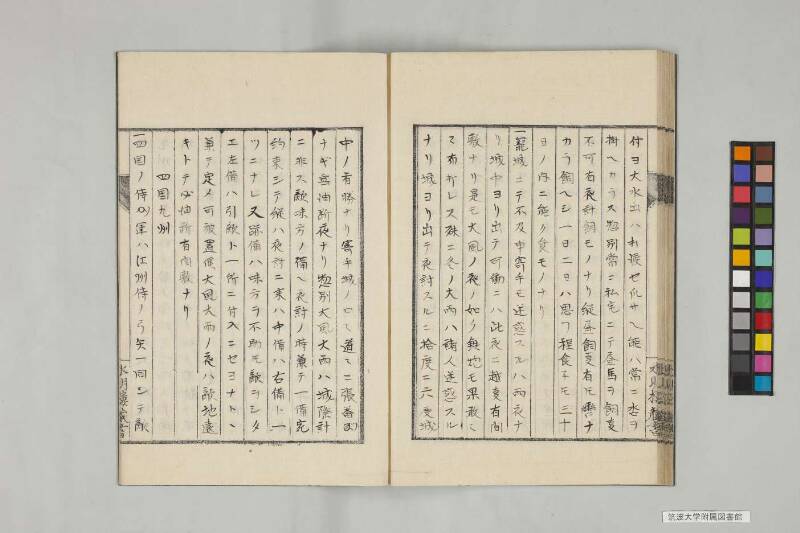 付ヨ大水出ハ打渡セ爪サヘ能ハ常ニ沓ヲ
掛ヘカラス惣別常ニ私宅ニテ昼馬ヲ飼変
不可有夜計飼モノナリ縦昼飼変有トモ
カラ飼ヘシ一日ニヨハ思フ程食子モ三十
ヨノ内ニ能ク食モノナリ
一籠城ニテ不及申寄手モ迷惑スルハ雨夜ナ
リ城中ヨリ出テ可働ニハ此夜ニ越変有間
敷ナリ是モ大風ノ夜ノ如ク鉄炮モ果敢々
テ有ヤレス殊ニ冬ノ大雨ハ諸人迷惑スル
ナリ城ヨリ出テ夜討スルニ拾度ニ六度城
中ノ者勝ナリ寄手城ノ口々道々ニ張番
ナギ無油断夜ナリ惣別大風大雨ハ城際計
ニ非ス敵味方ノ備ヘ夜討ノ時兼テ一備完
約束シテ縦ハ夜討ニ来ハ中備ハ右備ト一
ツニナレ又跡備ハ味方ヲ不助トモ敵ヲシタ
エ左備ハ引敵ト一所ニ付入ニセヨナト
兼テ定メ可被置候大風大雨ノ夜ハ敵地遠
キトテ必油断有間敷ナリ
四国九州
一四国ノ侍ノ軍ハ江州侍ノ弓矢一同シテ敵
筑波大学附属図書館